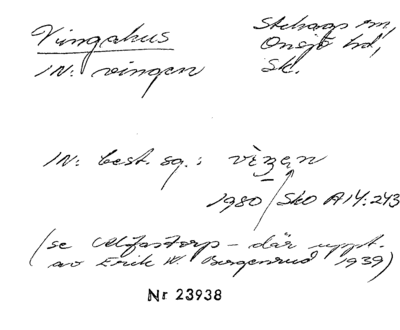 Vingahus Stehags sn,
IN: vingen Onsjö hd,
Sk.
IN: best. sg.: vìŋən
1980 / Sko A14:243
(se Ulfastorp – där uppt.
av Erik W. Borgenrud 1939)
Nr 23938